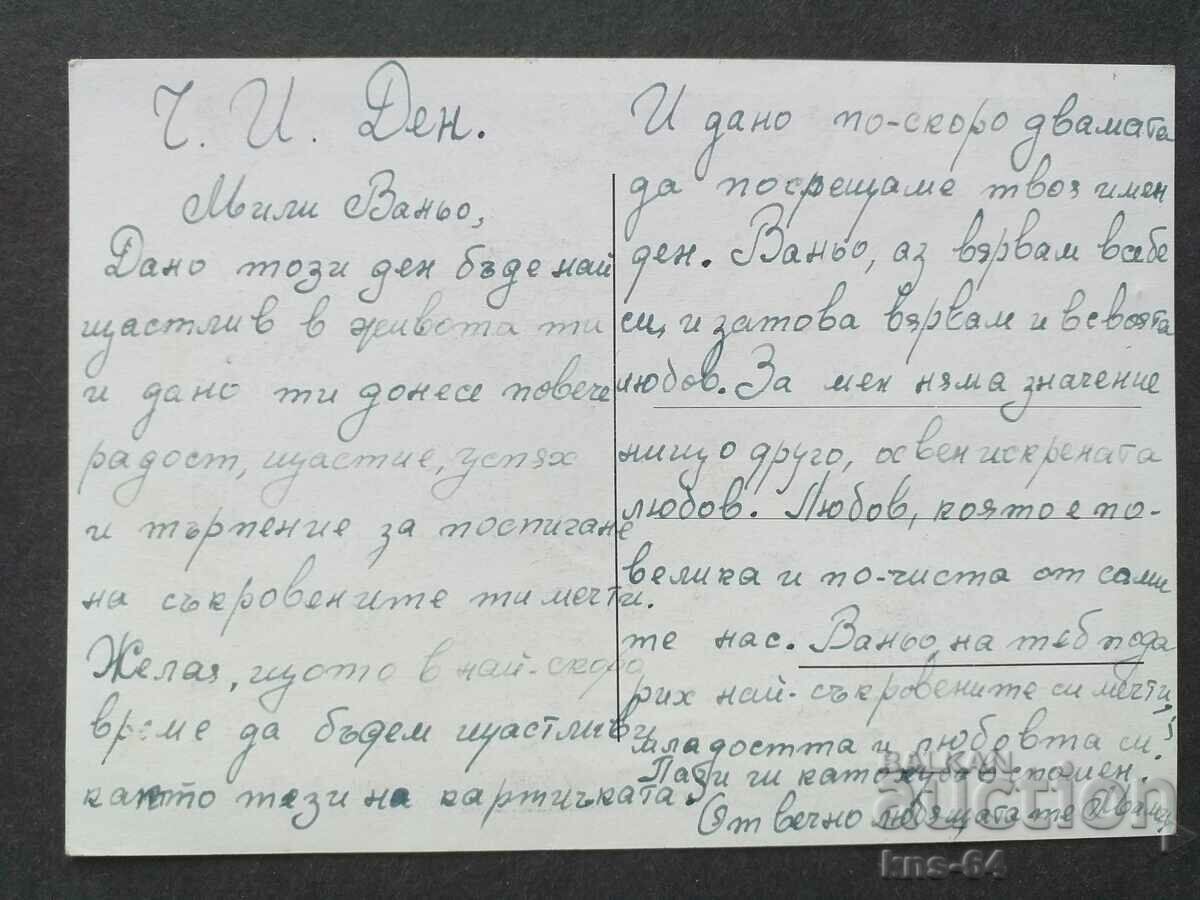 Ч. И. Ден.
Мили Ваньо,
Дано този ден бъде най
щастлив в живота ти
и дано ти донесе повече
радост, щастие, успях
и търпение за постигане
на съкровените ти мечти.
Желая, щото в най-скоро
време да бъдем щастливи
както тези на картичката.
И дано по-скоро двамата
да посрещаме твоя имен
ден. Ваньо, аз вярвам в себе
си, и затова вярвам и в своята
любов. За мен няма значение
нищо друго, освен искрената
любов. Любов, която е по-
велика и по-чиста от сами
те нас. Ваньо, на теб пода
рих най-съкровените си мечти,
младостта и любовта си!
Пази ги като хубав спомен!
От вечно любящата те
BALKAN
auction
kns-64